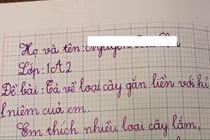 Họ và tên:
Lớp: 1A2
Đề bài: Tả về loại cây gắn liền với kỉ
niệm của em.
Em thích nhiều loại cây lắm,